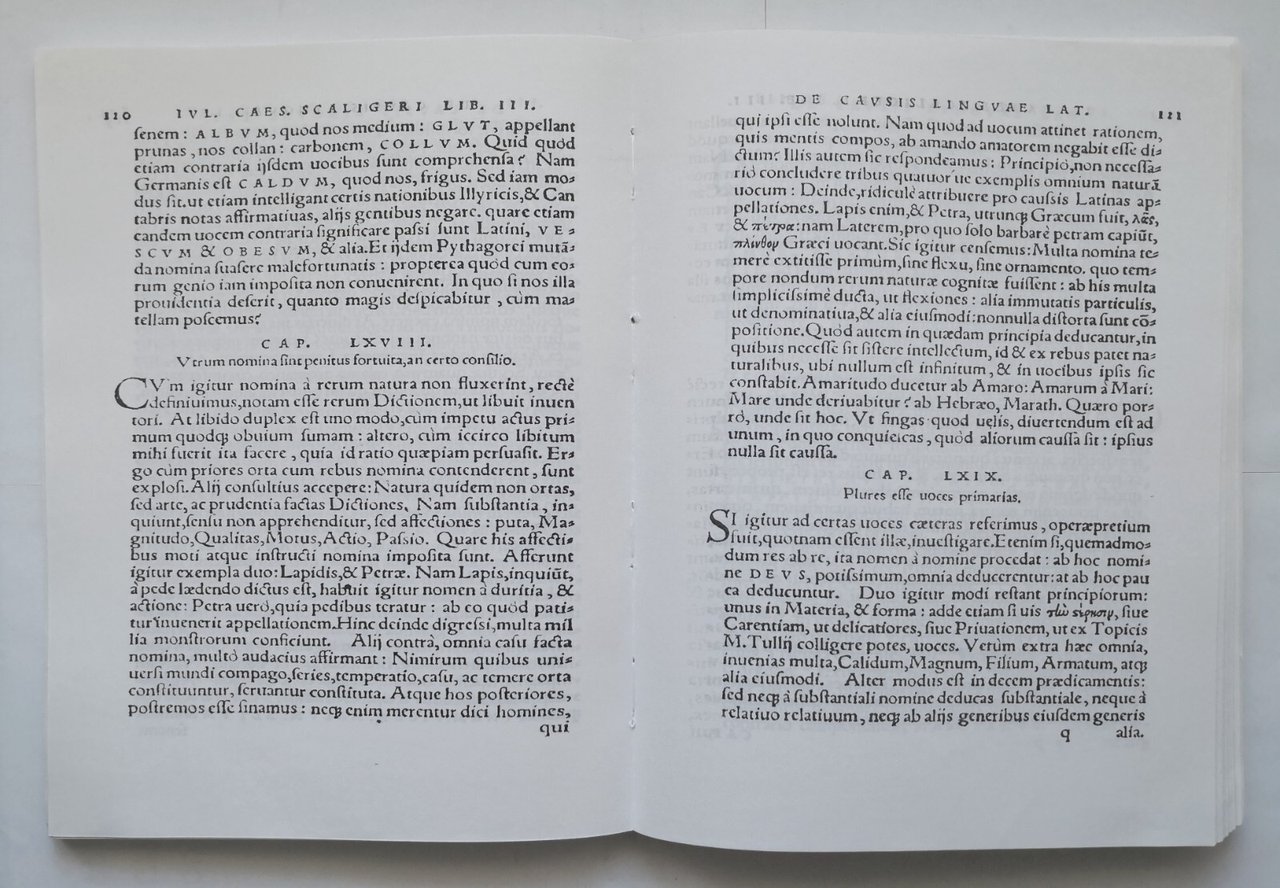 120 IVL. CAES. SCALIGERI LIB. III.
ſenem: ALBVM, quod nos medium: GLVT, appellant
prunas, nos collan: carbonem, COLLVM. Quid quòd
etiam contraria ijſdem uocibus ſunt comprehenſa? Nam
Germanis eſt CALDVM, quod nos, frigus. Sed iam mo⸗
dus ſit. ut etiam intelligant certis nationibus Illyricis, & Can
tabris notas affirmatiuas, alijs gentibus negare. quare etiam
eandem uocem contraria ſignificare paſſi ſunt Latini, VE⸗
SCVM & OBESVM, & alia. Et ijdem Pythagorei mutã⸗
da nomina ſuaſere malefortunatis: propterea quòd cum eo⸗
rum genio iam impoſita non conuenirent. In quo ſi nos illa
prouidentia deſerit, quanto magis deſpicabitur, cùm ma⸗
tellam poſcemus?
CAP. LXVIII.
Vtrum nomina ſint penitus fortuita, an certo conſilio.
CVm igitur nomina à rerum natura non fluxerint, rectè
definiuimus, notam eſſe rerum Dictionem, ut libuit inuen
tori. At libido duplex eſt uno modo, cùm impetu actus pri⸗
mum quodq; obuium ſumam: altero, cùm iccirco libitum
mihi fuerit ita facere, quia id ratio quæpiam perſuaſit. Er⸗
go cùm priores orta cum rebus nomina contenderent, ſunt
exploſi. Alij conſultius accepere: Natura quidem non ortas,
ſed arte, ac prudentia factas Dictiones. Nam ſubſtantia, in⸗
quiunt, ſenſu non apprehenditur, ſed affectiones: puta, Ma⸗
gnitudo, Qualitas, Motus, Actio, Paſsio. Quare his affecti⸗
bus moti atque inſtructi nomina impoſita ſunt. Afferunt
igitur exempla duo: Lapidis, & Petræ. Nam Lapis, inquiũt,
à pede lædendo dictus eſt, habuit igitur nomen à duritia, &
actione: Petra uerò, quia pedibus teratur: ab eo quòd pati⸗
tur inuenerit appellationem. Hinc deinde digreſsi, multa mil
lia monſtrorum conficiunt. Alij contrà, omnia caſu facta
nomina, multò audacius affirmant: Nimirum quibus uni⸗
uerſi mundi compago, ſeries, temperatio, caſu, ac temere orta
conſtituuntur, ſeruantur conſtituta. Atque hos poſteriores,
poſtremos eſſe ſinamus: neq; enim merentur dici homines,
qui
DE CAVSIS LINGVAE LAT. 121
qui ipſi eſſe nolunt. Nam quod ad uocum attinet rationem,
quis mentis compos, ab amando amatorem negabit eſſe di⸗
ctum? Illis autem ſic reſpondeamus: Principiò, non neceſſa⸗
riò concludere tribus quatuor'ue exemplis omnium naturã
uocum: Deinde, ridiculè attribuere pro cauſsis Latinas ap⸗
pellationes. Lapis enim, & Petra, utrunq; Græcum fuit, λᾶς,
& πέτρα: nam Laterem, pro quo ſolo barbarè petram capiũt,
πλίνθον Græci uocant. Sic igitur cenſemus: Multa nomina te⸗
merè extitiſſe primùm, ſine flexu, ſine ornamento. quo tem⸗
pore nondum rerum naturæ cognitæ fuiſſent: ab his multa
ſimpliciſsimè ducta, ut flexiones: alia immutatis particulis,
ut denominatiua, & alia eiuſmodi: nonnulla diſtorta ſunt cõ⸗
poſitione. Quòd autem in quædam principia deducantur, in
quibus neceſſe ſit ſiſtere intellectum, id & ex rebus patet na⸗
turalibus, ubi nullum eſt infinitum, & in uocibus ipſis ſic
conſtabit. Amaritudo ducetur ab Amaro: Amarum à Mari:
Mare unde deriuabitur? ab Hebræo, Marath. Quæro por⸗
rò, unde ſit hoc. Vt fingas quod uelis, diuertendum eſt ad
unum, in quo conquieſcas, quòd aliorum cauſſa ſit: ipſius
nulla ſit cauſſa.
CAP. LXIX.
Plures eſſe uoces primarias.
SI igitur ad certas uoces cæteras referimus, operæpretium
fuit, quotnam eſſent illæ, inueſtigare. Etenim ſi, quemadmo⸗
dum res ab re, ita nomen à nomine procedat: ab hoc nomi⸗
ne DEVS, potiſsimum, omnia deducerentur: at ab hoc pau
ca deducuntur. Duo igitur modi reſtant principiorum:
unus in Materia, & forma: adde etiam ſi uis τὴν στέρησιν, ſiue
Carentiam, ut delicatiores, ſiue Priuationem, ut ex Topicis
M. Tullij colligere potes, uoces. Verùm extra hæc omnia,
inuenias multa, Calidum, Magnum, Filium, Armatum, atq;
alia eiuſmodi. Alter modus eſt in decem prædicamentis:
ſed neq; à ſubſtantiali nomine deducas ſubſtantiale, neque à
relatiuo relatiuum, neq; ab alijs generibus eiuſdem generis
q alia.